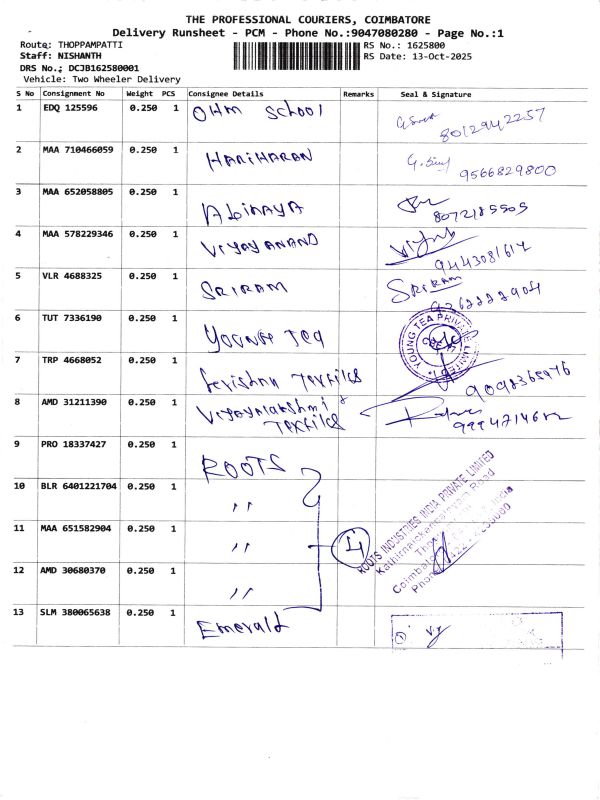 THE PROFESSIONAL COURIERS, COIMBATORE
Delivery Runsheet - PCM - Phone No.:9047080280 - Page No.:1
Route: THOPPAMPATTI
RS No.: 1625800
Staff: NISHANTH
RS Date: 13-Oct-2025
DRS No.; DCJB162580001
Vehicle: Two Wheeler Delivery
S No Consignment No Weight PCS Consignee Details Remarks Seal & Signature
1 EDQ 125596 0.250 1 OHM SCHOOl
8012942257
2 MAA 710466059 0.250 1 HARIHARAN
9566829800
3 MAA 652058805 0.250 1 AbiNAYA
8072185505
4 MAA 578229346 0.250 1 VIJAYANAND
9443081614
5 VLR 4688325 0.250 1 SRIRAM SRIRAM
6 TUT 7336190 0.250 1 YOUNGE TEA
YOUNG TEA PRIVATE LIMITED
7 TRP 4668052 0.250 1 TEXTILES
8 AMD 31211390 0.250 1 VIJAYALAKSHMI
TEXTILES
9 PRO 18337427 0.250 1 ROOTS
10 BLR 6401221704 0.250 1 ,,
11 MAA 651582904 0.250 1 ,,
4
ROOTS INDUSTRIES INDIA PRIVATE LIMITED
12 AMD 30680370 0.250 1 ,,
13 SLM 380065638 0.250 1 Emerald